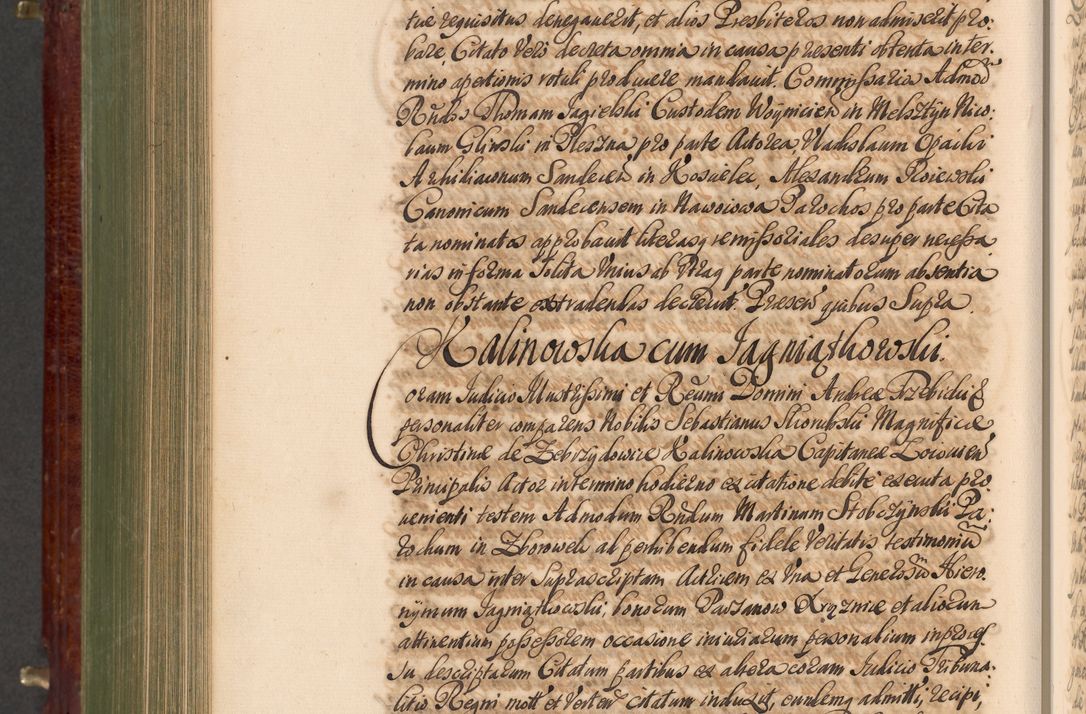 tue requisitus denegaverit, et alios Presbiteros non admiserit pro:
bare, Citato Vero decreta omnia in causa presenti obtenta in ter:
mino apertionis rotuli producere mandavit. Commissarios Admod
Rñdos Thomam Jagielski Custodem Woynicien in Melsztyn Nico:
laum Glinski in Pleszna pro parte Actorea, Vladislaum Opacki
Archidiaconum Sandecen in Koscielec, Alexandrum Roiewski
Canonicum Sandecensem in Nawoiowa Parochos pro parte Cita
ta nominatos approbavit literasq remissoriales desuper necessa
rias in forma solita Unius ab Utraq parte nominatorum absentia
non obstante extradendas decrevit. Præsen quibus Supra.
Kalinowska cum Jagniątkowski.
Coram Judicio Illustrissimi et Reumi Domini Andreæ Trzebicki &
personaliter comparens Nobilis Sebastianus Skorubski Magnificæ
Christinæ de Zebrzydowice Kalinowska Capitaneæ Lowicien
Principalis Actor in termino hodierno ex citatione debite executa pro
venienti testem Admodum Rñdum Martinum Stobczynski Pa:
rochum in Zborowek ad perhibendum fidele Veritatis testimoniu
in causa inter Suprascriptam Actricem ex Una et Generosu Hiero:
nÿmum Jagniątkowski, bonorum Parzanow Łrycznice et aliorum
attinentium possessorem occasione iniuriarum personalium in proces
su descriptarum Citatum partibus ex altera coram Judicio Tribuna:
litio Regni mott et Verten citatum induxit, eundemq admitti, recipi,